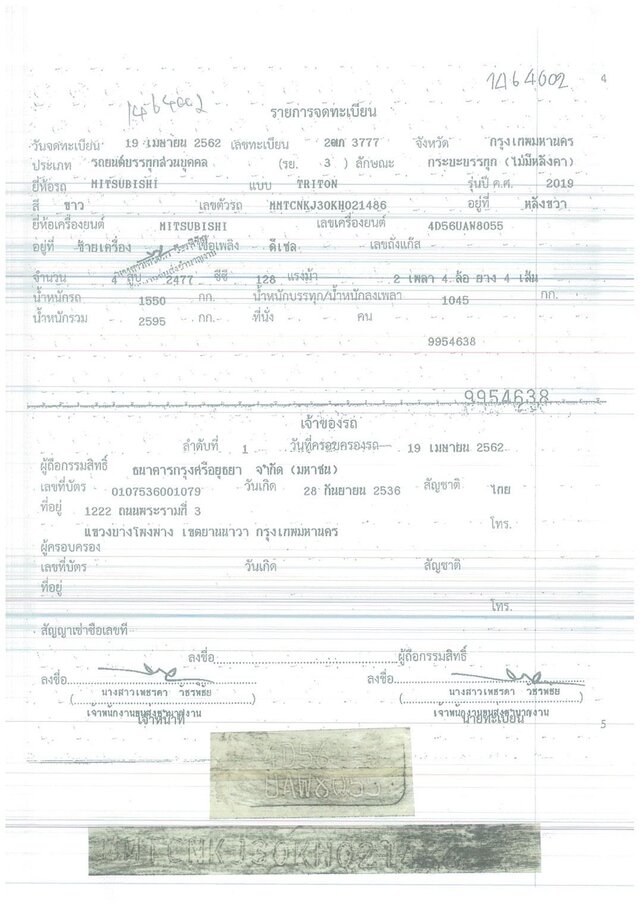 1464002
4
1464002
รายการจดทะเบียน
วันจดทะเบียน 19 เมษายน 2562 เลขทะเบียน 3777 จังหวัด กรุงเทพมหานคร
ประเภท รถยนต์บรรทุกส่วนบุคคล (รย. 3 ) ลักษณะ กระบะบรรทุก (ไม่มีหลังคา)
ยี่ห้อรถ MITSUBISHI แบบ TRITON รุ่นปี ค.ศ. 2019
สี ขาว เลขตัวรถ MMTCNKJ30KH021486 อยู่ที่ หลังขวา
ยี่ห้อเครื่องยนต์ MITSUBISHI เลขเครื่องยนต์ 4D56UAW8055
อยู่ที่ ซ้ายเครื่อง เชื้อเพลิง ดีเซล เลขถังแก๊ส
จำนวน 4 สูบ 2477 ซีซี 128 แรงม้า 2 เพลา 4 ล้อ ยาง 4 เส้น
น้ำหนักรถ 1550 กก. น้ำหนักบรรทุก/น้ำหนักลงเพลา 1045 กก.
น้ำหนักรวม 2595 กก. ที่นั่ง คน
9954638
9954638
เจ้าของรถ
ลำดับที่ 1 วันที่ครอบครองรถ 19 เมษายน 2562
ผู้ถือกรรมสิทธิ์ ธนาคารกรุงศรีอยุธยา จำกัด (มหาชน)
เลขที่บัตร 0107536001079 วันเกิด 28 กันยายน 2536 สัญชาติ ไทย
ที่อยู่ 1222 ถนนพระรามที่ 3 โทร.
แขวงบางโพงพาง เขตยานนาวา กรุงเทพมหานคร
ผู้ครอบครอง
เลขที่บัตร วันเกิด สัญชาติ
ที่อยู่
โทร.
สัญญาเช่าซื้อเลขที่
ลงชื่อ ผู้ถือกรรมสิทธิ์
ลงชื่อ ลงชื่อ
เจ้าหน้าที่ นายทะเบียน
5
4D56
UAW8055
MMTCNKJ30KH021